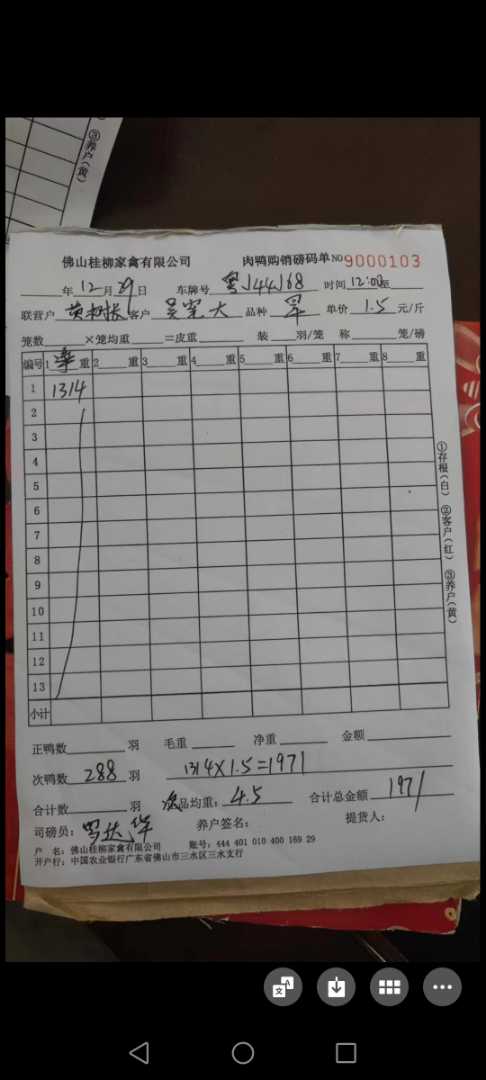 ③养户(黄)
佛山桂柳家禽有限公司 肉鸭购销磅码单 NO 9000103
年 12 月 29 日 车牌号 粤J44J68 时间 12:00 至
联营户 客户 品种 单价 1.5 元/斤
笼数 ×笼均重 =皮重 装 羽/笼 称 笼/磅
编号 1 重 2 重 3 重 4 重 5 重 6 重 7 重 8 重
1 1314
2
3
4
5
6
7
8
9
10
11
12
13
小计
①存根(白) ②客户(红) ③养户(黄)
正鸭数 羽 毛重 净重 金额
次鸭数 288 羽 1314×1.5=1971
合计数 羽 次品均重: 4.5 合计总金额 1971
司磅员: 养户签名: 提货人:
户 名: 佛山桂柳家禽有限公司 账号: 444 401 010 400 169 29
开户行: 中国农业银行广东省佛山市三水区三水支行